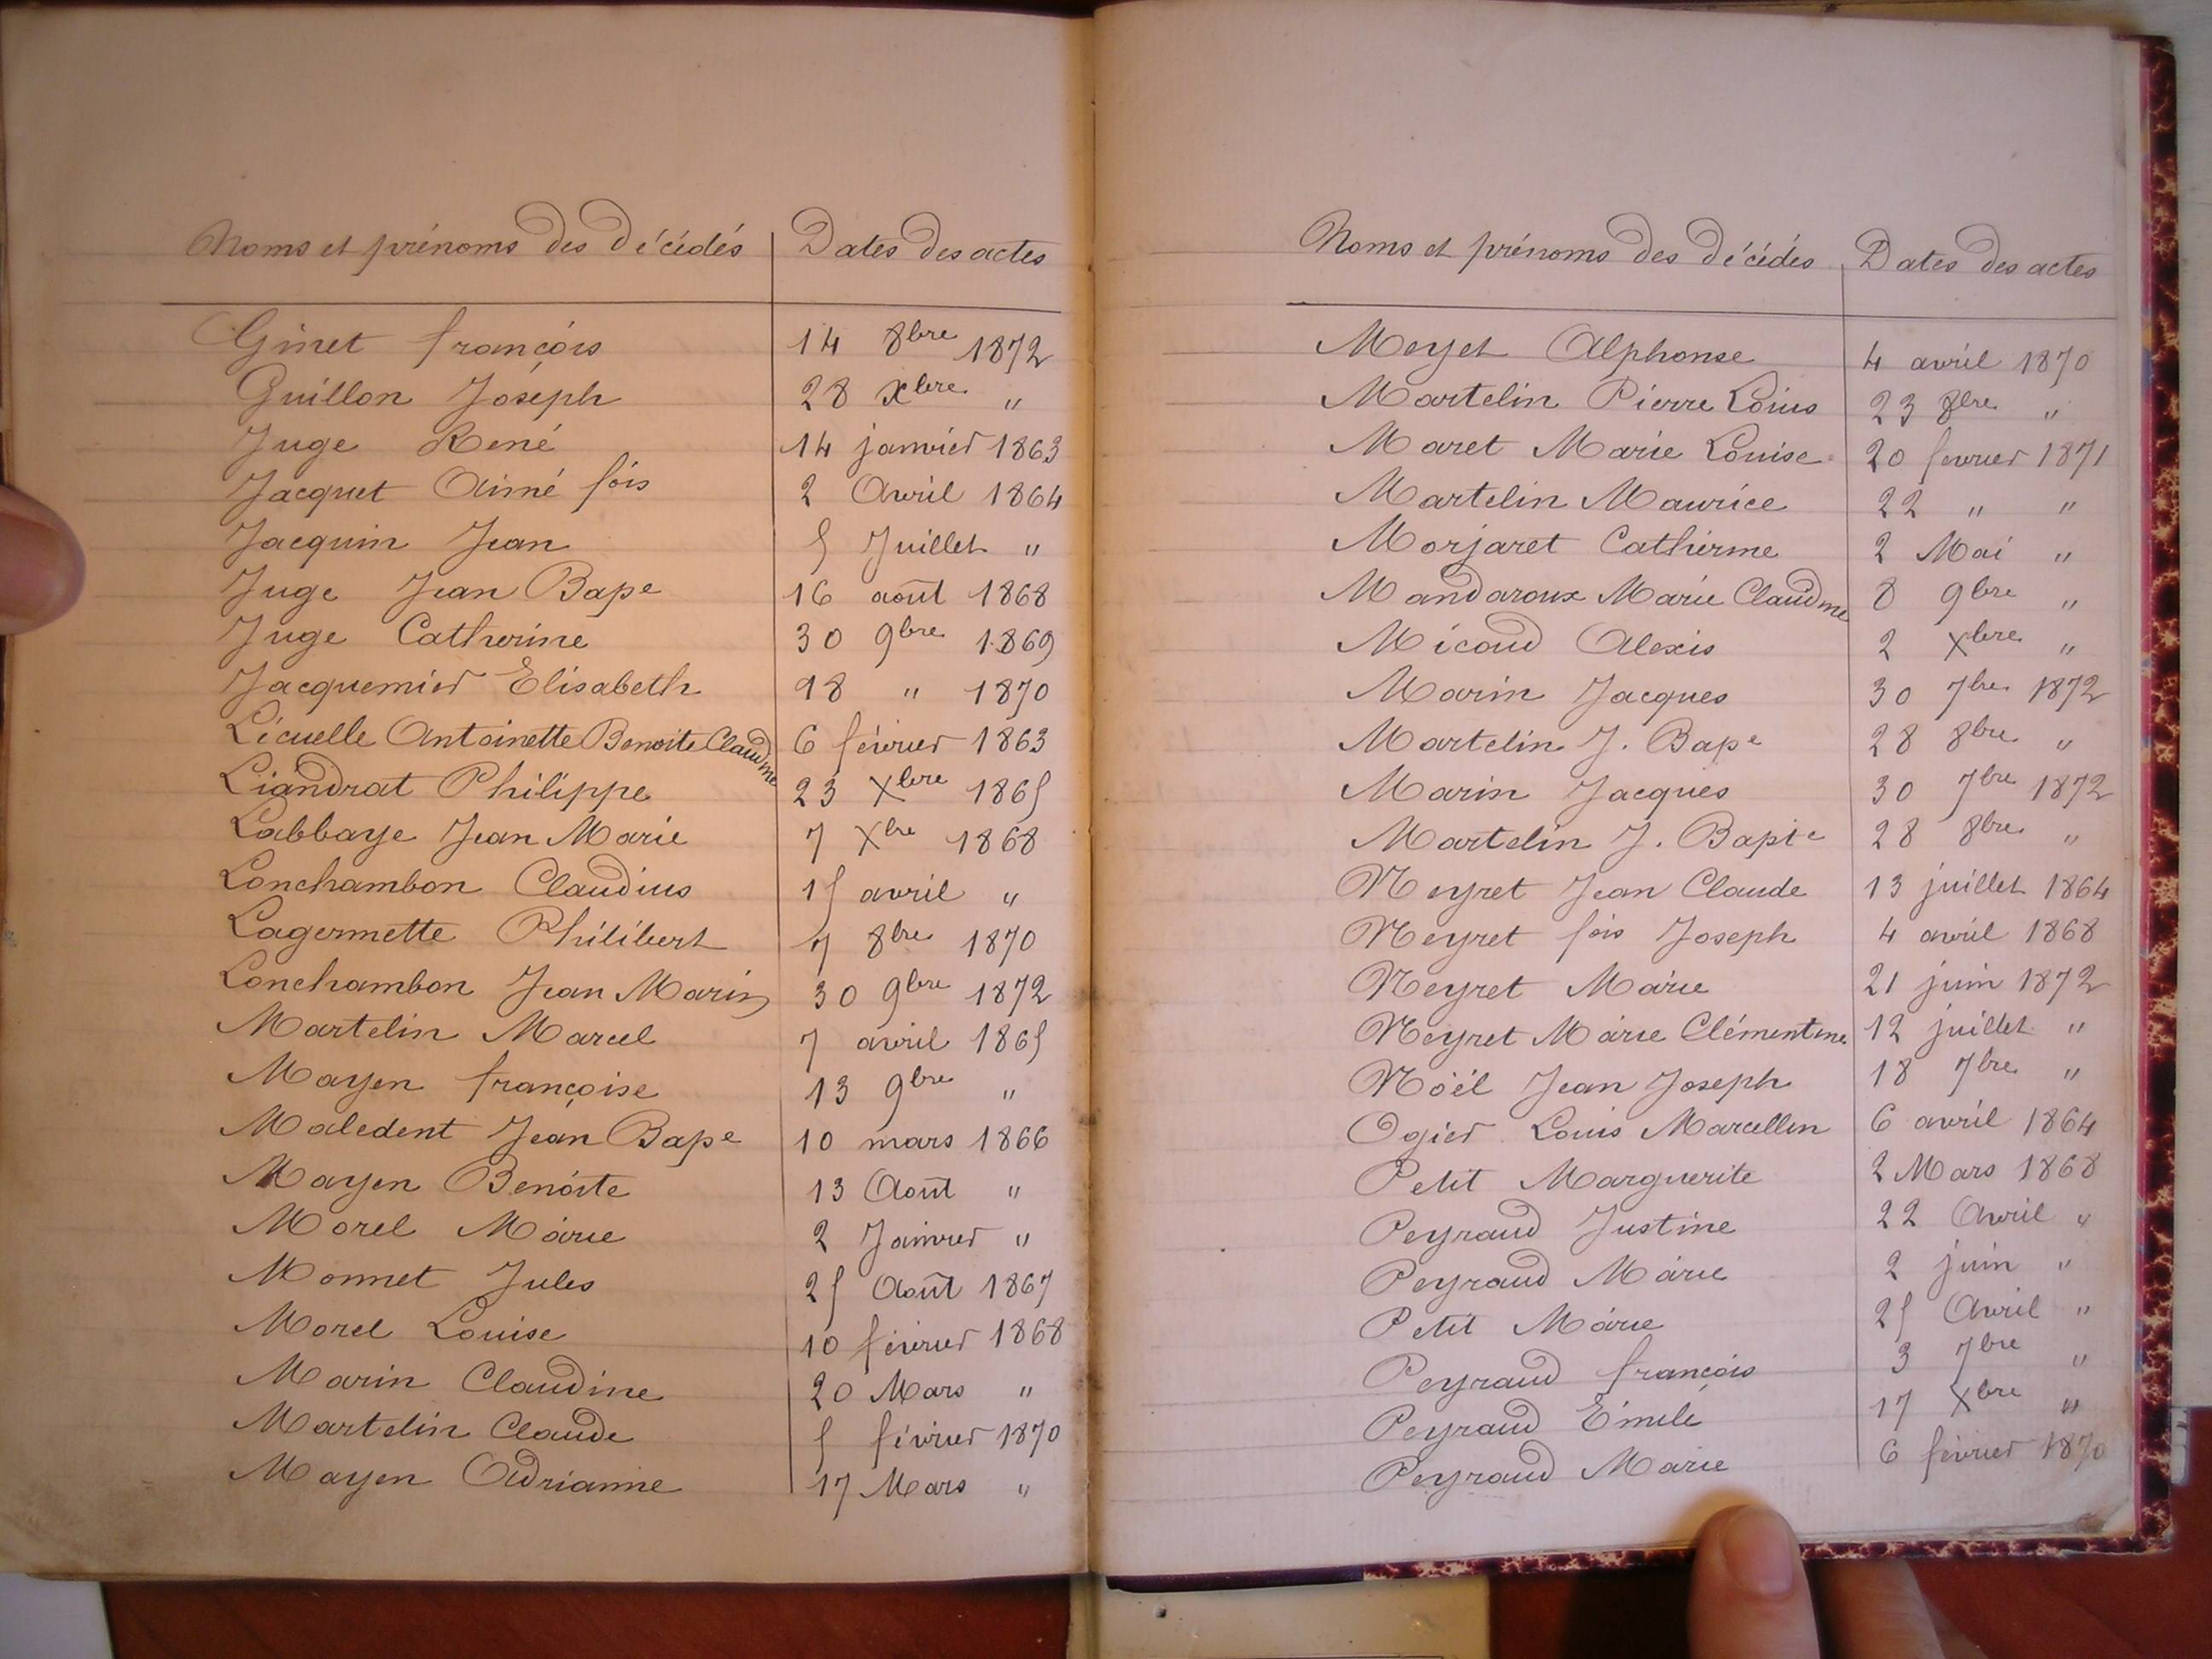 Noms et prénoms des décédés Dates des actes
Ginet françois 14 8bre 1872
Guillon Joseph 28 xbre "
Juge René 14 janvier 1863
Jacquet Aimé fois 2 Avril 1864
Jacquin Jean 5 Juillet "
Juge Jean Bape 16 août 1868
Juge Catherine 30 9bre 1869
Jacquemier Elisabeth 98 " 1870
Lécuelle Antoinette Benoite Claudine 6 février 1863
Liandrat Philippe 23 Xbre 1865
Labbaye Jean Marie 7 Xbre 1868
Lonchambon Claudius 15 avril "
Lagermette Philibert 7 8bre 1870
Lonchambon Jean Marin 30 9bre 1872
Martelin Marcel 7 avril 1865
Mayen françoise 13 9bre "
Maledent Jean Bape 10 mars 1866
Mayen Benoite 13 Août "
Morel Marie 2 Janvier "
Monnet Jules 25 Août 1867
Morel Louise 10 février 1868
Marin Claudine 20 Mars "
Martelin Claude 5 février 1870
Mayen Adrianne 17 Mars "
Noms et prénoms des décédés Dates des actes
Meyet Alphonse 4 avril 1870
Martelin Pierre Louis 23 8bre "
Maret Marie Louise 20 fevrier 1871
Martelin Maurice 22 " "
Morjaret Catherine 2 Mai "
Mandaroux Marie Claudine 8 9bre "
Micaud Alexis 2 Xbre "
Marin Jacques 30 7bre 1872
Martelin J. Bape 28 8bre "
Marin Jacques 30 7bre 1872
Martelin J. Bapte 28 8bre "
Neyret Jean Claude 13 juillet 1864
Neyret fois Joseph 4 avril 1868
Neyret Marie 21 juin 1872
Neyret Marie Clémentine 12 juillet "
Noël Jean Joseph 18 7bre "
Ogier Louis Marcellin 6 avril 1864
Petit Marguerite 2 Mars 1868
Peyraud Justine 22 Avril "
Peyraud Marie 2 juin "
Petit Marie 25 Avril "
Peyraud françois 3 7bre "
Peyraud Emile 17 Xbre "
Peyraud Marie 6 février 1870